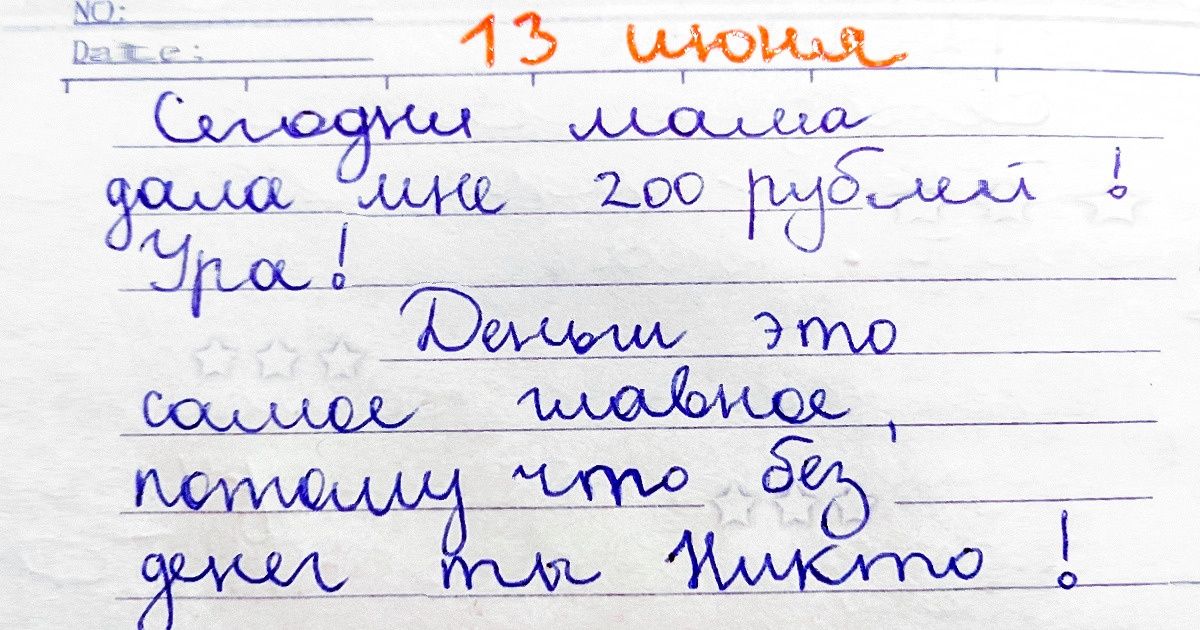 NO:
Date: 13 июня
Сегодни мама
дала мне 200 рублей!
Ура!
Деньги это
самое главное,
потому что без
денег ты Никто!